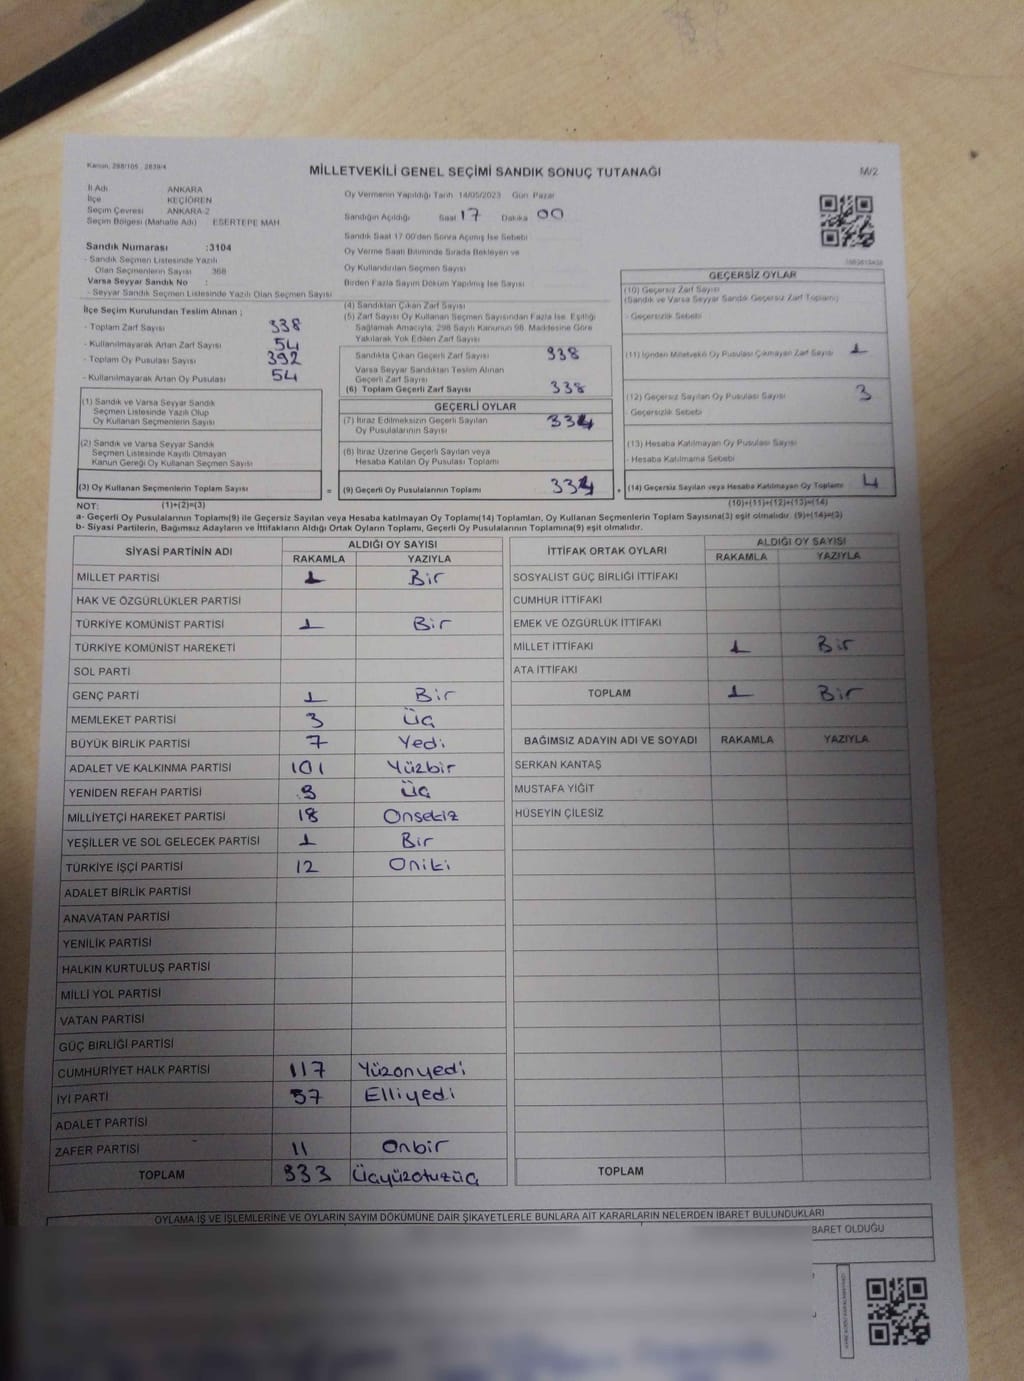 Kanun, 298/105 , 2839/4
MİLLETVEKİLİ GENEL SEÇİMİ SANDIK SONUÇ TUTANAĞI
M/2
İl Adı ANKARA
İlçe KEÇİÖREN
Seçim Çevresi ANKARA-2
Seçim Bölgesi (Mahalle Adı) ESERTEPE MAH
Sandık Numarası :3104
- Sandık Seçmen Listesinde Yazılı
Olan Seçmenlerin Sayısı 368
Varsa Seyyar Sandık No :
- Seyyar Sandık Seçmen Listesinde Yazılı Olan Seçmen Sayısı
İlçe Seçim Kurulundan Teslim Alınan ;
- Toplam Zarf Sayısı 338
- Kullanılmayarak Artan Zarf Sayısı 54
- Toplam Oy Pusulası Sayısı 392
- Kullanılmayarak Artan Oy Pusulası 54
(1) Sandık ve Varsa Seyyar Sandık
Seçmen Listesinde Yazılı Olup
Oy Kullanan Seçmenlerin Sayısı
(2) Sandık ve Varsa Seyyar Sandık
Seçmen Listesinde Kayıtlı Olmayan
Kanun Gereği Oy Kullanan Seçmen Sayısı
(3) Oy Kullanan Seçmenlerin Toplam Sayısı
Oy Vermenin Yapıldığı Tarih 14/05/2023 Gün Pazar
Sandığın Açıldığı Saat 17 Dakika 00
Sandık Saat 17.00'den Sonra Açılmış İse Sebebi
Oy Verme Saati Bitiminde Sırada Bekleyen ve
Oy Kullandırılan Seçmen Sayısı
Birden Fazla Sayım Döküm Yapılmış İse Sayısı
(4) Sandıktan Çıkan Zarf Sayısı
(5) Zarf Sayısı Oy Kullanan Seçmen Sayısından Fazla İse, Eşitliği
Sağlamak Amacıyla, 298 Sayılı Kanunun 98. Maddesine Göre
Yakılarak Yok Edilen Zarf Sayısı
Sandıkta Çıkan Geçerli Zarf Sayısı 338
Varsa Seyyar Sandıktan Teslim Alınan
Geçerli Zarf Sayısı
(6) Toplam Geçerli Zarf Sayısı 338
GEÇERLİ OYLAR
(7) İtiraz Edilmeksizin Geçerli Sayılan
Oy Pusulalarının Sayısı 334
(8) İtiraz Üzerine Geçerli Sayılan veya
Hesaba Katılan Oy Pusulası Toplamı
= (9) Geçerli Oy Pusulalarının Toplamı 334 +
GEÇERSİZ OYLAR
(10) Geçersiz Zarf Sayısı
(Sandık ve Varsa Seyyar Sandık Geçersiz Zarf Toplamı)
- Geçersizlik Sebebi
(11) İçinden Milletvekili Oy Pusulası Çıkmayan Zarf Sayısı 1
(12) Geçersiz Sayılan Oy Pusulası Sayısı 3
- Geçersizlik Sebebi
(13) Hesaba Katılmayan Oy Pusulası Sayısı
- Hesaba Katılmama Sebebi
(14) Geçersiz Sayılan veya Hesaba Katılmayan Oy Toplamı 4
NOT: (1)+(2)=(3)
(10)+(11)+(12)+(13)=(14)
a- Geçerli Oy Pusulalarının Toplamı(9) ile Geçersiz Sayılan veya Hesaba katılmayan Oy Toplamı(14) Toplamları, Oy Kullanan Seçmenlerin Toplam Sayısına(3) eşit olmalıdır. (9)+(14)=(3)
b- Siyasi Partilerin, Bağımsız Adayların ve İttifakların Aldığı Ortak Oyların Toplamı, Geçerli Oy Pusulalarının Toplamına(9) eşit olmalıdır.
SİYASİ PARTİNİN ADI ALDIĞI OY SAYISI
RAKAMLA YAZIYLA
MİLLET PARTİSİ 1 Bir
HAK VE ÖZGÜRLÜKLER PARTİSİ
TÜRKİYE KOMÜNİST PARTİSİ 1 Bir
TÜRKİYE KOMÜNİST HAREKETİ
SOL PARTİ
GENÇ PARTİ 1 Bir
MEMLEKET PARTİSİ 3 Üç
BÜYÜK BİRLİK PARTİSİ 7 Yedi
ADALET VE KALKINMA PARTİSİ 101 Yüzbir
YENİDEN REFAH PARTİSİ 3 Üç
MİLLİYETÇİ HAREKET PARTİSİ 18 Onsekiz
YEŞİLLER VE SOL GELECEK PARTİSİ 1 Bir
TÜRKİYE İŞÇİ PARTİSİ 12 Oniki
ADALET BİRLİK PARTİSİ
ANAVATAN PARTİSİ
YENİLİK PARTİSİ
HALKIN KURTULUŞ PARTİSİ
MİLLİ YOL PARTİSİ
VATAN PARTİSİ
GÜÇ BİRLİĞİ PARTİSİ
CUMHURİYET HALK PARTİSİ 117 Yüzonyedi
İYİ PARTİ 57 Elliyedi
ADALET PARTİSİ
ZAFER PARTİSİ 11 Onbir
TOPLAM 333 Üçyüzotuzüç
İTTİFAK ORTAK OYLARI ALDIĞI OY SAYISI
RAKAMLA YAZIYLA
SOSYALİST GÜÇ BİRLİĞİ İTTİFAKI
CUMHUR İTTİFAKI
EMEK VE ÖZGÜRLÜK İTTİFAKI
MİLLET İTTİFAKI 1 Bir
ATA İTTİFAKI
TOPLAM 1 Bir
BAĞIMSIZ ADAYIN ADI VE SOYADI RAKAMLA YAZIYLA
SERKAN KANTAŞ
MUSTAFA YİĞİT
HÜSEYİN ÇİLESİZ
TOPLAM
OYLAMA İŞ VE İŞLEMLERİNE VE OYLARIN SAYIM DÖKÜMÜNE DAİR ŞİKAYETLERLE BUNLARA AİT KARARLARIN NELERDEN İBARET BULUNDUKLARI
BARET OLDUĞU